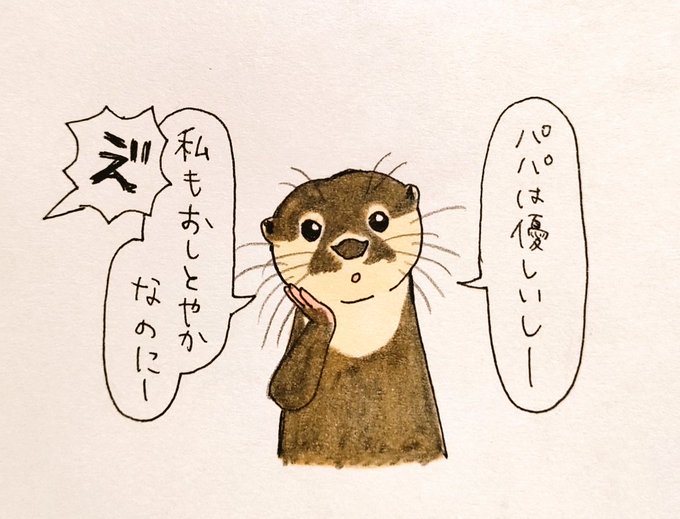 パパは優しいしー
私もおしとやか
なのにー
え゛